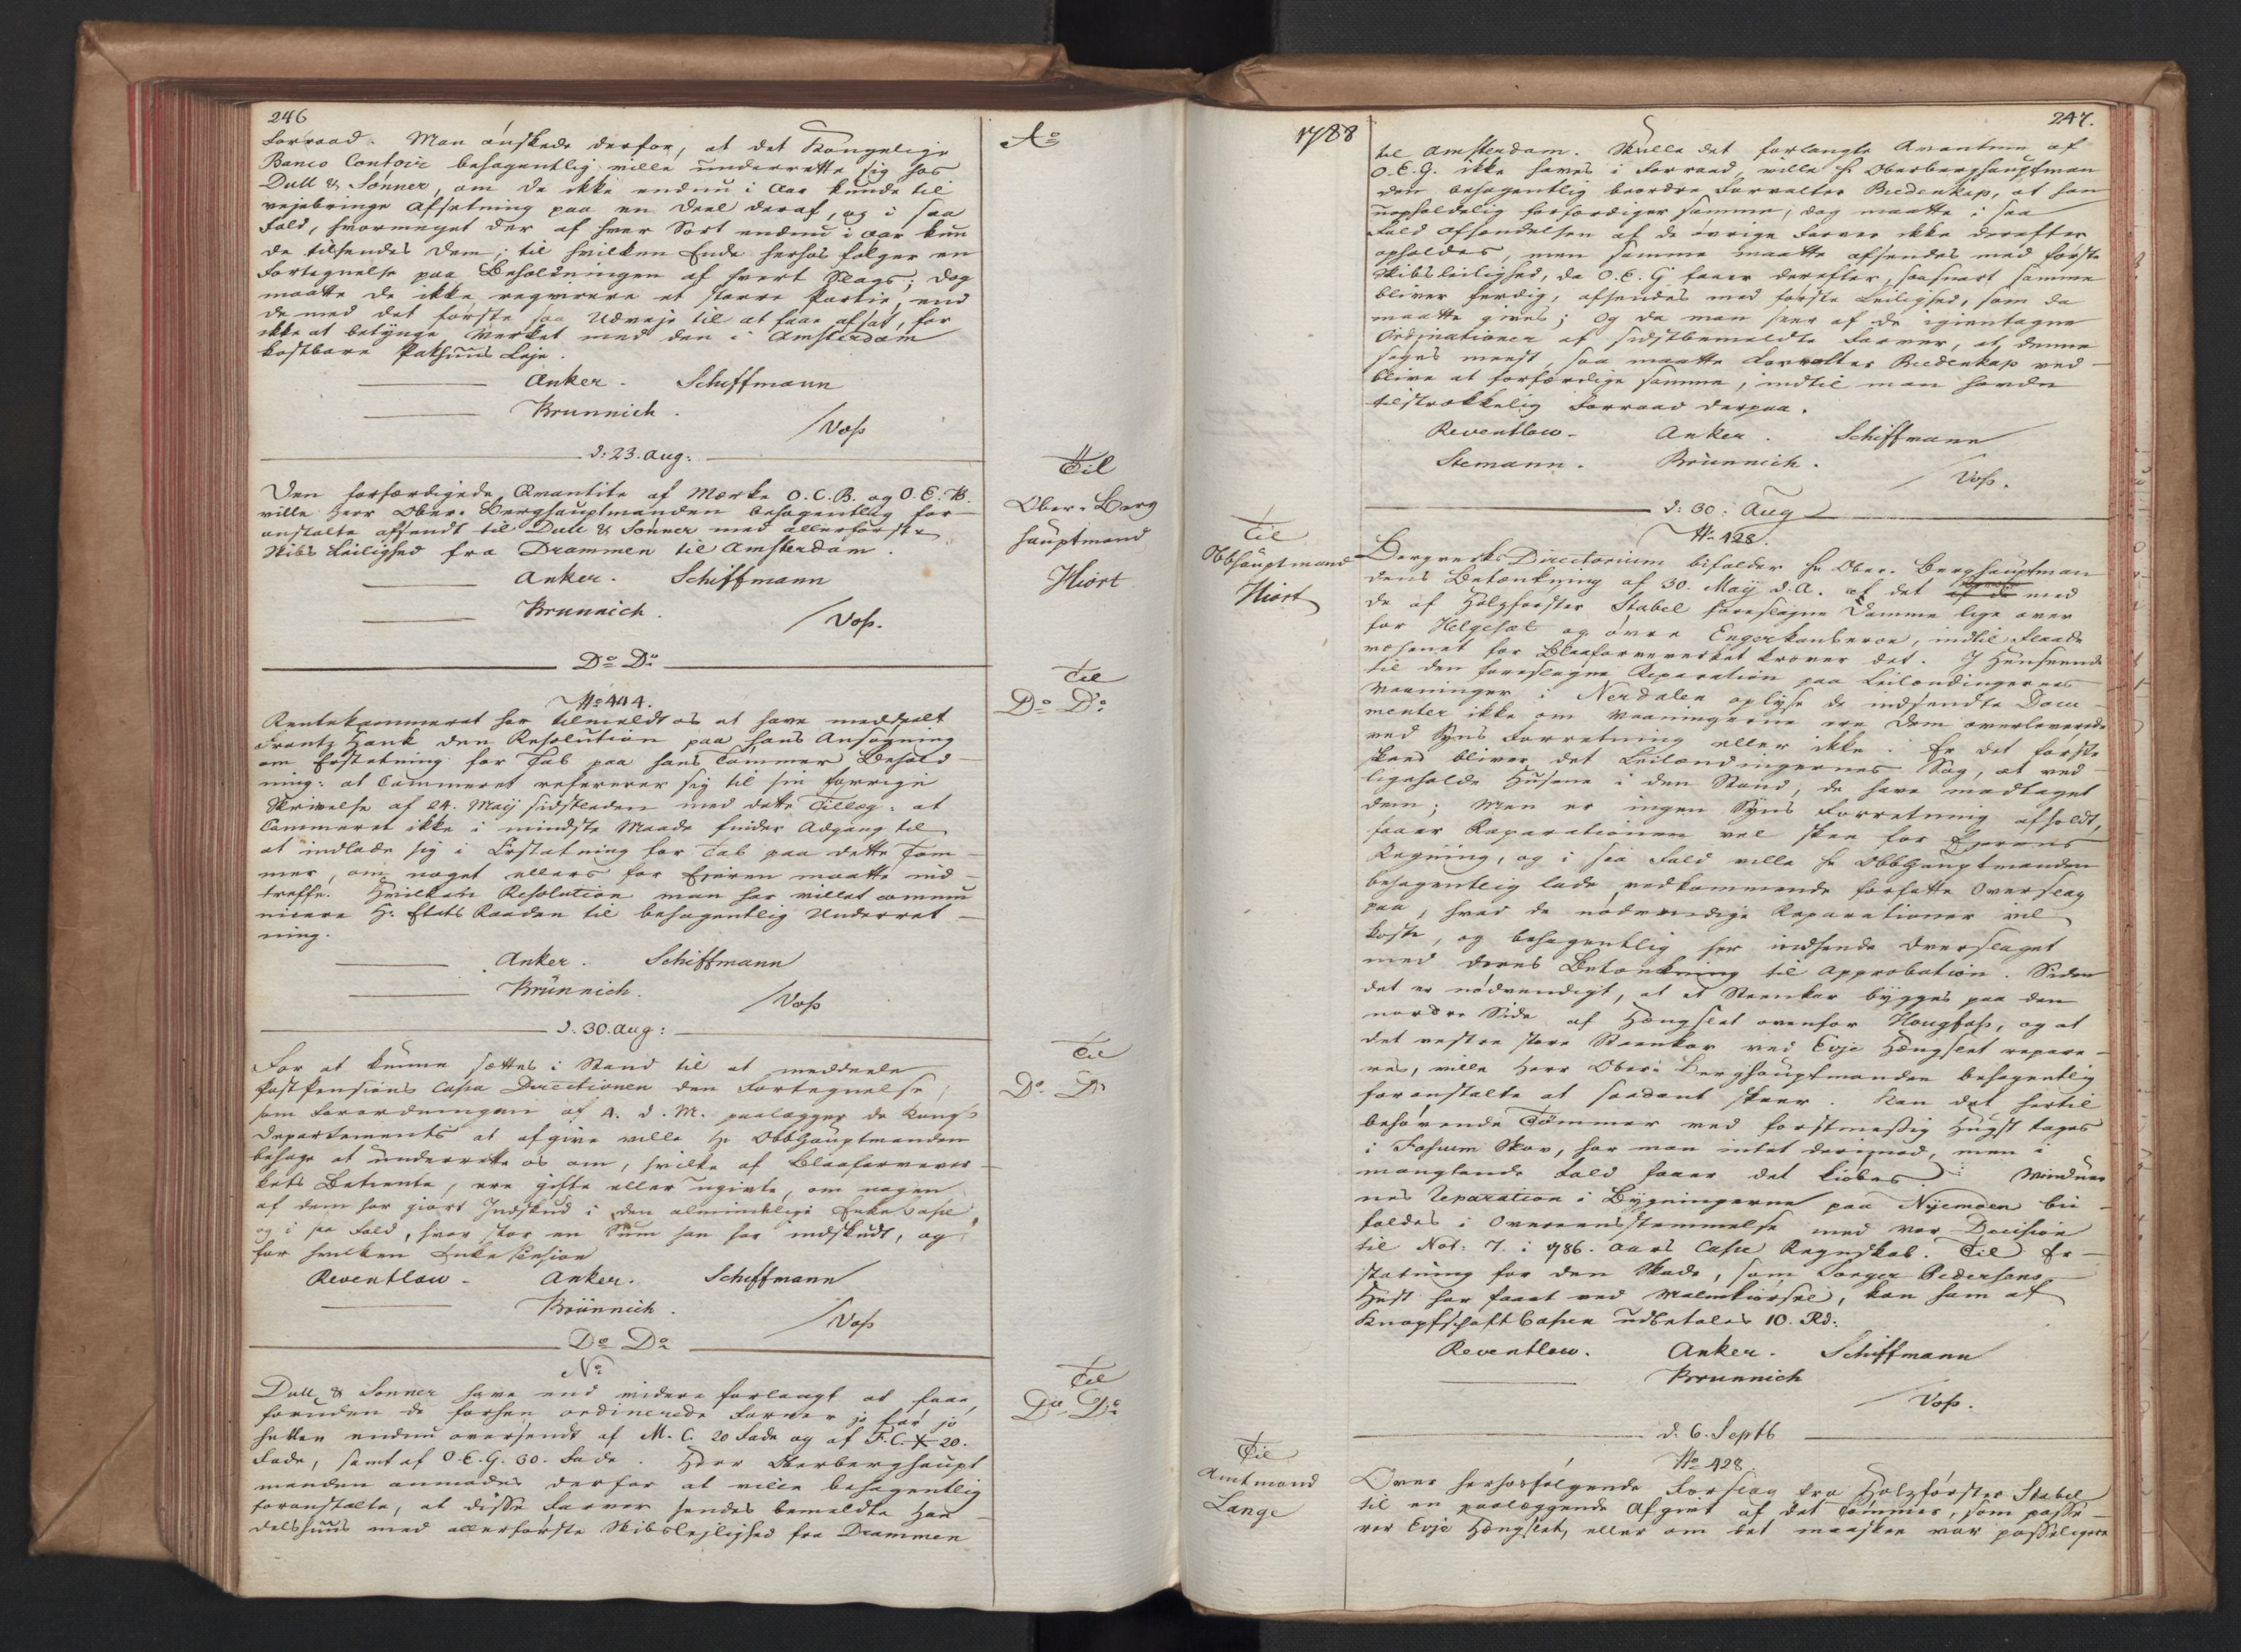 246
Forraad. Man ønskede derfor, at det Kongelige
Banco Contoir behagentlig wille underrette sig hos
Dull & Sønner, om de ikke endnu i Aar kunde til
vejebringe Afsætning paa en Deel deraf, og i saa
Fald, hvormeget der af hver Sort endnu i Aar kun
de tilsendes dem; til hvilken Ende herhos følger en
Fortegnelse paa Beholdningen af hvert Slags; dog
maatte de ikke reqvirere et større Partie, end
de med det første saa Udveje til at faae afsat, for
ikke at betynge Verket med den i Amsterdam
kostbare Pakhuus Leje.
Anker. Schiffmann
Brunnich.
/Voss
d: 23. Aug:
Den forfærdigede Qvantite af Mærke O.C.B. og O.E.B.
ville Herr Ober-Berghauptmanden behagentlig for-
anstalte afsendt til Dull & Sønner med allerførste
Skibs Leilighed fra Drammen til Amsterdam.
Anker. Schiffmann
Brunnich.
/Voss.
Do Do
No 444.
Rentekammeret har tilmeldt os at have meddeelt
Frantz Hauk den Resolution paa hans Ansøgning
om Erstatning for Tab paa hans Tømmer Behold-
ning: at Cammeret refererer sig til sin forrige
Skrivelse af 24. Maij sidstleden med dette Tillæg: at
Cammeret ikke i mindste Maade finder Adgang til
at indlade sig i Erstatning for Tab paa dette Tøm-
mer, om noget ellers for Ejeren maatte ind-
treffe. Hvilken Resolution man har villet commu
nicere Hr. Etats Raaden til behagentlig Underret-
ning.
Anker. Schiffmann
Brünnich.
/Voss
d. 30. Aug:
For at kunne sættes i Stand til at meddeele
Post Pensions Cassa Directionen den Fortegnelse,
som Forordningen af 4. d. M. paalægger de Kongl.
Departements at afgive ville Hr ObBHauptmanden
behage at underrette os om, hvilke af Blaafarvever-
kets Betiente, ere gifte eller ugivte, om nogen
af dem har giort Indskud i den almindelige Enke Casse
og i saa Fald, hvor stor en Sum han har indskudt, og
for hvilken Enke Pension
Reventlow. Anker. Schiffmann
Brünnich.
/Voss
Do Do
No
Dull & Sønner have end videre forlangt at faae,
foruden de forhen ordinerede Farver jo før jo
heller endnu oversendt af M.C. 20 Fade og af F.C. 20.
Fade, samt af O.E.G. 30. Fade. Herr Oberberghaupt
manden anmodes derfor at ville behagentlig
foranstalte, at disse Farver sendes bemeldte Han-
delshuus med allerførste Skibsleylighed fra Drammen
Ao
Til
Ober-Berg
hauptmand
Hiort
Til
Do Do
Til
Do Do
Til
Do Do
1788
247.
til Amsterdam. Skulle det forlangte Qvantum af
O.E.G. ikke haves i Forraad, ville Hr Oberberghauptman
den behagentlig beordre Forvalter Bredenkap, at han
uopholdelig forfærdiger samme; dog maatte i saa
Fald Afsendelsen af de øvrige Farver ikke derefter
opholdes, men samme maatte afsendes med første
Skibsleilighed, da O.E.G faaer derefter, saasnart samme
bliver ferdig, afsendes med første Leilighed, som da
maatte gives; Og da man seer af de igientagne
Ordinationer af sidstbemeldte Farver, at denne
søges meest, saa maatte Forvalter Bredenkap ved-
blive at forfærdige samme, indtil man havde
tilstrækkelig Forraad derpaa.
Reventlow. Anker. Schiffmann
Stemann. Brünnich.
/Voss.
d: 30: Aug
No 428.
Bergverks Directorium bifalder Hr Ober-Berghauptman
dens Betænkning af 30. Maij d.A. at det med
de af Holzførster Stabel foreslagne Damme lige over
for Helgesæt og øvre Engerkansroe, indtil Flaade
væsenet for Blaafarveverket kræver det. I Henseende
til den foreslagne Reparation paa Leilændingernes
Vaaninger i Nerdalen oplyse de indsendte Docu-
menter ikke om Vaaningerne ere dem overleverede
ved Syns Forretning eller ikke. Er det første
skeed bliver det Leilændingernes Sag, at ved-
ligeholde Husene i den Stand, de have modtaget
dem; Men er ingen Syns Forretning afholdt,
faaer Reparationen vel skee for Ejerens
Regning, og i saa Fald ville Hr ObBHauptmanden
behagentlig lade vedkommende forfatte Overslag
paa, hvad de nødvendige Reparationer vil
koste, og behagentlig her indsende Overslaget
med deres Betænkning til Approbation. Siden
det er nødvendigt, at et Steenkar bygges paa den
nordre Side af Hængslet ovenfor Hougfoss, og at
det vestre store Steenkar ved Evje Hængslet repare-
res, ville Herr Ober-Berghauptmanden behagentlig
foranstalte at saadant skeer. Kan det hertil
behøvende Tømmer ved forstmessig Hugst tages
i Fossum Skov, har man intet derimod, men i
manglende Fald faaer det kiøbes. Vinduer
nes Reparation i Bygningerne paa Nyemoen bi-
faldes i Overeensstemmelse med vor Decision
til Not: 7. i 786. Aars Casse Regnskab. Til Er-
statning for den Skade, som Torger Pedersens
Hest har faaet ved Malmkiørsel, kan ham af
Knapsschaft Cassen udbetales 10. Rd.
Reventlow. Anker. Schiffmann
Brunnich
/Voss.
d. 6. Septb
No 428.
Over herhosfølgende Forslag fra Holzførster Stabel
til en paalæggende Afgivt af det Tømmer, som passe-
rer Evje Hængslet, eller om det maaskee var passeligere
Til
ObBhauptmand
Hiort
Til
Amtmand
Lange